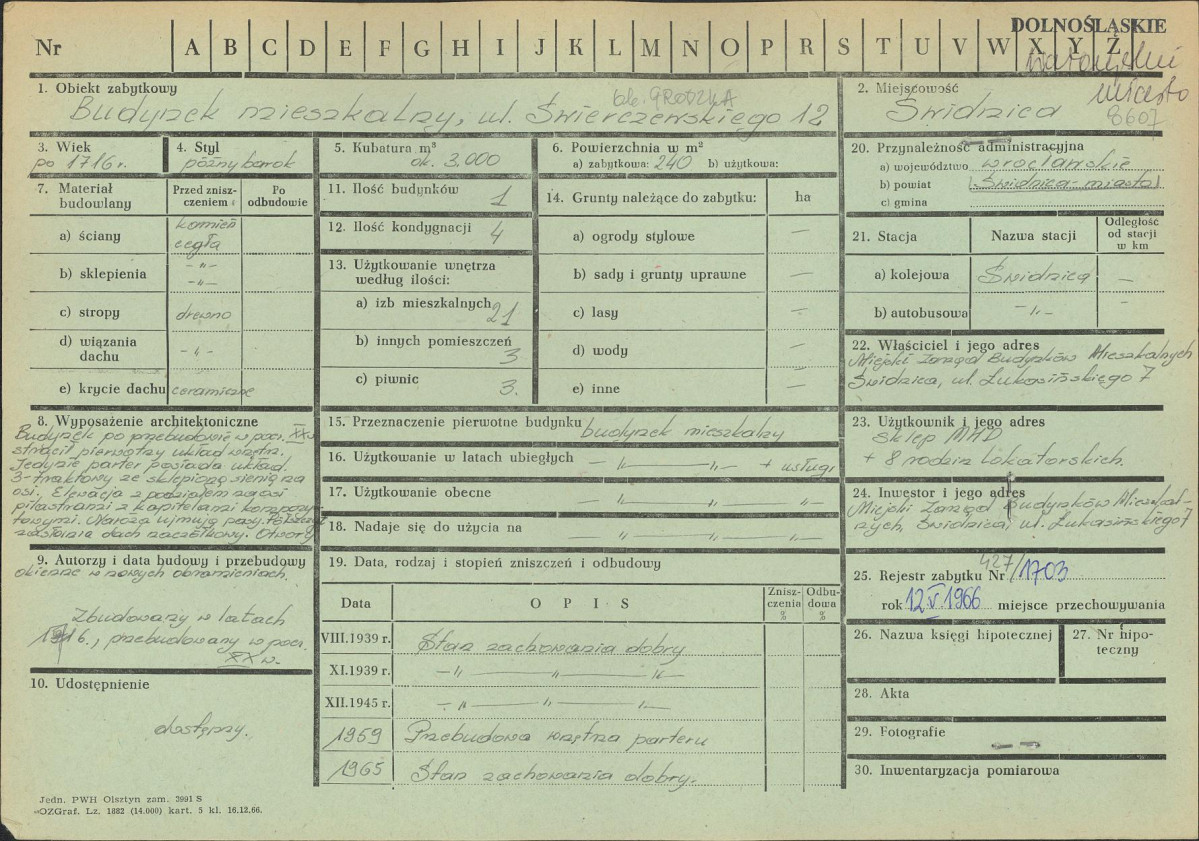 DOLNOŚLĄSKIE
Nr A B C D E F G H I J K L M N O P R S T U V W X Y Z
miasto
8607
1. Obiekt zabytkowy
ob. GRODZKA
Budynek mieszkalny, ul. Świerczewskiego 12
2. Miejscowość
Świdnica
3. Wiek
po 1716 r.
4. Styl
późny barok
5. Kubatura m³
ok. 3.000
6. Powierzchnia w m²
a) zabytkowa: 240 b) użytkowa:
20. Przynależność administracyjna
a) województwo wrocławskie
b) powiat (Świdnica-miasto)
c) gmina
7. Materiał budowlany
Przed zniszczeniem:
Po odbudowie
a) ściany kamień
cegła
b) sklepienia -„-
-„-
c) stropy drewno
d) wiązania dachu -„-
e) krycie dachu ceramiczne
11. Ilość budynków 1
12. Ilość kondygnacji 4
13. Użytkowanie wnętrza według ilości:
a) izb mieszkalnych 21
b) innych pomieszczeń 3
c) piwnic 3.
14. Grunty należące do zabytku: ha
a) ogrody stylowe —
b) sady i grunty uprawne —
c) lasy —
d) wody —
e) inne —
21. Stacja
Nazwa stacji
Odległość od stacji w km
a) kolejowa Świdnica —
b) autobusowa -„- —
22. Właściciel i jego adres
Miejski Zarząd Budynków Mieszkalnych
Świdnica, ul. Łukasińskiego 7
8. Wyposażenie architektoniczne
Budynek po przebudowie w pocz. XX w.
stracił pierwotny układ wnętrz.
Jedynie parter posiada układ
3-traktowy ze sklepioną sienią na
osi. Elewacja z podziałem na osi
pilastrami z kapitelami kompozy-
towymi. Naroża ujmują pasy.
zasłania dach naczółkowy. Otwory
9. Autorzy i data budowy i przebudowy
okienne w nowych obramieniach.
Zbudowany w latach
1716., przebudowany w pocz.
XX w.
10. Udostępnienie
dostępny.
15. Przeznaczenie pierwotne budynku budynek mieszkalny
16. Użytkowanie w latach ubiegłych — „ — „ — + usługi
17. Użytkowanie obecne — „ — „ — „
18. Nadaje się do użycia na — „ — „ —
19. Data, rodzaj i stopień zniszczeń i odbudowy
Data
O P I S
Zniszczenia %
Odbudowa %
VIII.1939 r. Stan zachowania dobry
XI.1939 r. — „ — „ — „ —
XII.1945 r. — „ — „ — „ —
1959 Przebudowa wnętrza parteru
1965 Stan zachowania dobry.
23. Użytkownik i jego adres
Sklep MHD
+ 8 rodzin lokatorskich.
24. Inwestor i jego adres
Miejski Zarząd Budynków Mieszkal-
nych Świdnica, ul. Łukasińskiego 7
25. Rejestr zabytku Nr 427/1703
rok 12 V 1966 miejsce przechowywania
26. Nazwa księgi hipotecznej
27. Nr hipoteczny
28. Akta
29. Fotografie
30. Inwentaryzacja pomiarowa
Jedn. PWH Olsztyn zam. 2991 S
OZGraf. Lz. 1882 (14.000) kart. 5 kl. 16.12.66.